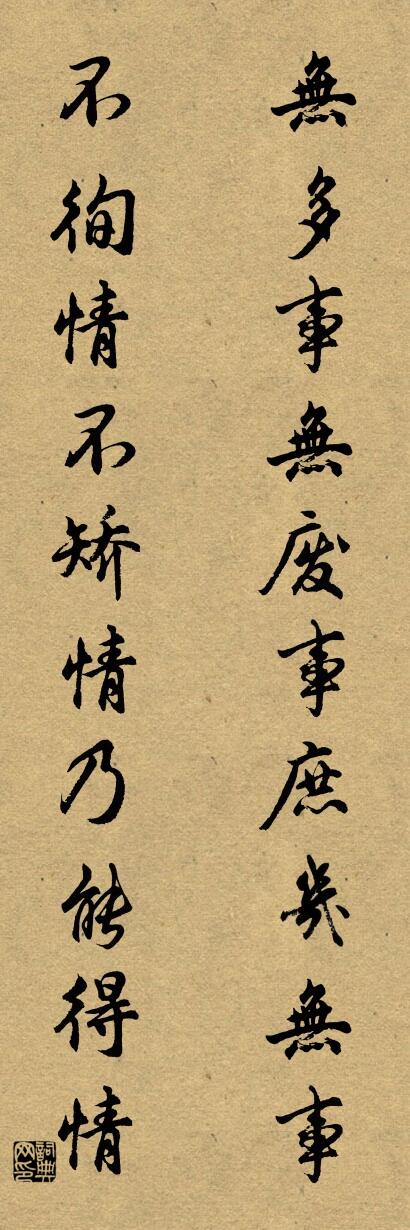 無多事無废事庶幾無事
不徇情不矫情乃能得情
詞典网印